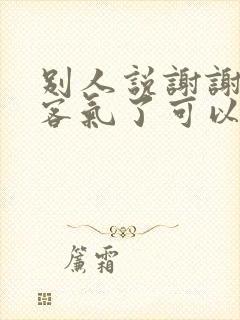 别人説謝謝
客氣了可以
簾霜